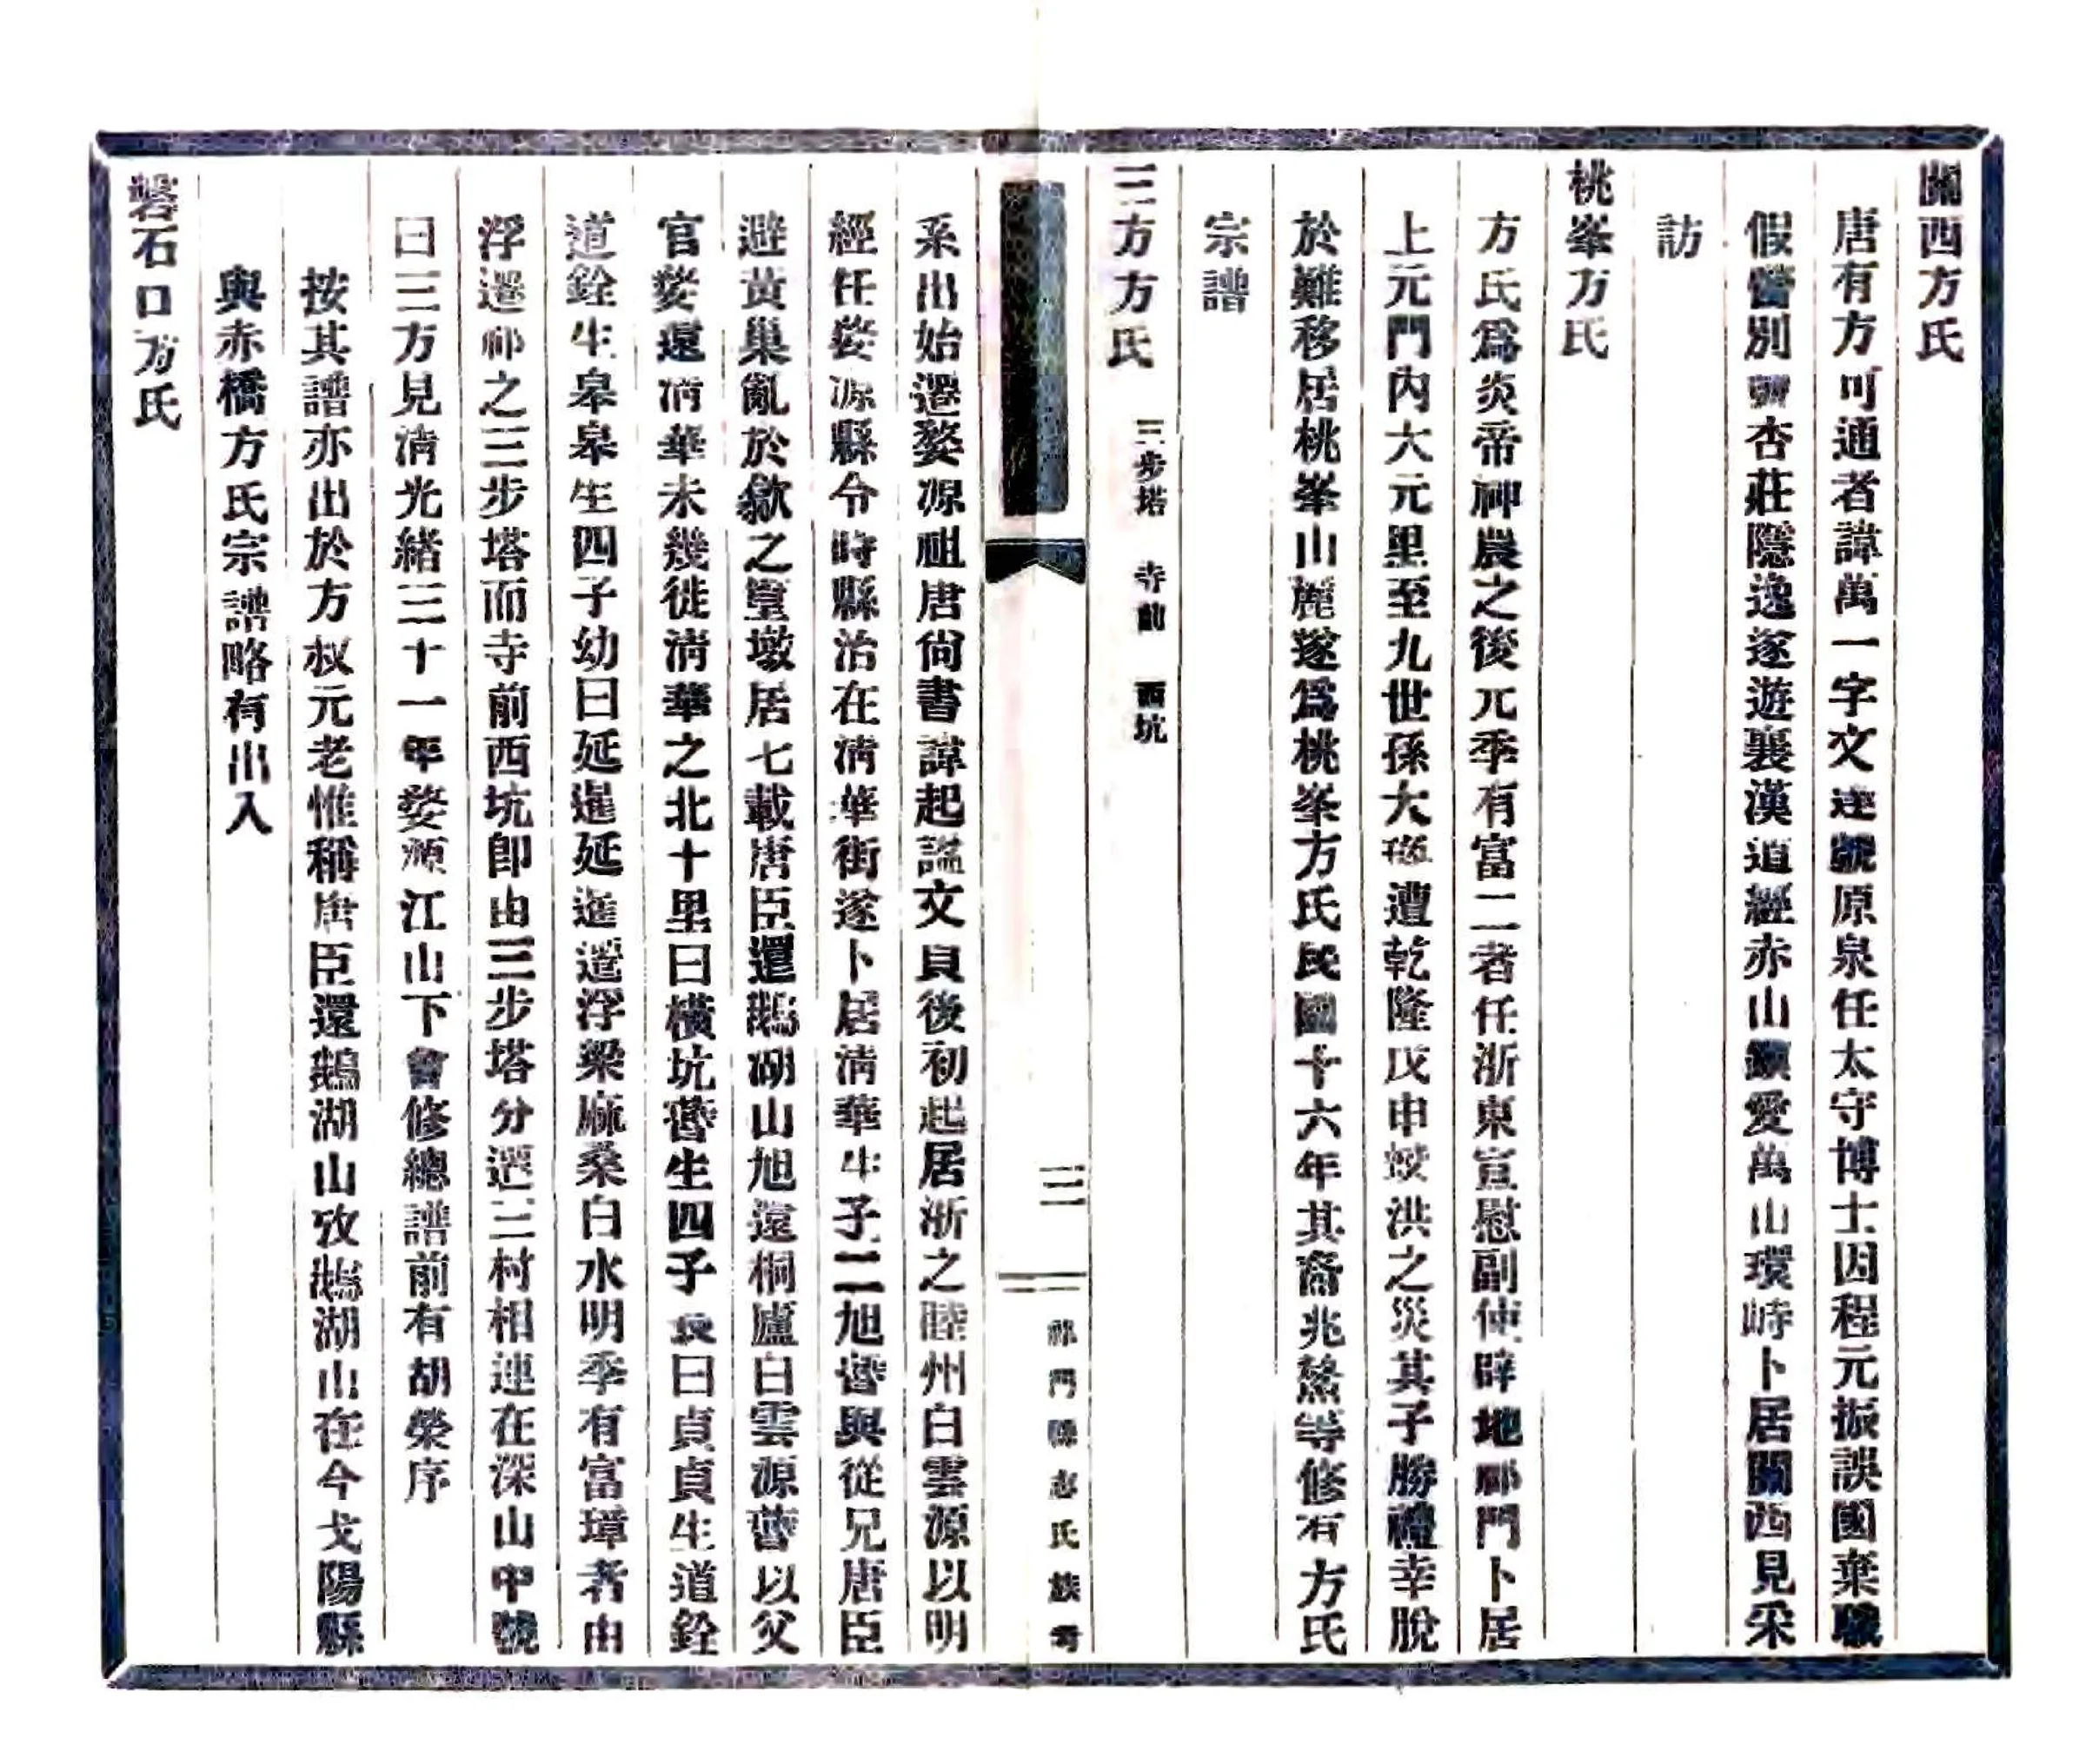 關西方氏
唐有方可通者諱萬一字文達號原泉任太守博士因程元振誤國棄職
假營別墅杏莊隱逸遂遊襄漢道經赤山鎮愛萬山環峙卜居關西見采
訪
桃峯方氏
方氏爲炎帝神農之後元季有富二者任浙東宣慰副使辟地祁門卜居
上元門內大元里至九世孫大遭乾隆戊申蛟洪之災其子勝禮幸脫
於難移居桃峯山麓遂爲桃峯方氏民國十六年其裔兆熬等修有方氏
宗譜
三方方氏 三步塔 寺前 西坑
三 祁門縣志氏族考
系出始遷婺源祖唐尙書諱起謚文貞後初起居浙之睦州白雲源以明
經任婺源縣令時縣治在淸華街遂卜居淸華生子二旭暬與從兄唐臣
避黃巢亂於歙之篁墩居七載唐臣還鵝湖山旭遠桐廬白雲源暬以父
官婺還淸華未幾徙淸華之北十里曰橫坑暬生四子長曰貞貞生道銓
道銓生皋皋生四子幼曰延暹延進遷浮梁麻桑白水明季有富璋者由
浮遷祁之三步塔而寺前西坑卽由三步塔分遷三村相連在深山中號
曰三方見淸光緒三十一年婺源江山下會修總譜前有胡榮序
按其譜亦出於方叔元老惟稱唐臣還鵝湖山攷鵝湖山在今弋陽縣
與赤橋方氏宗譜略有出入
磐石口方氏